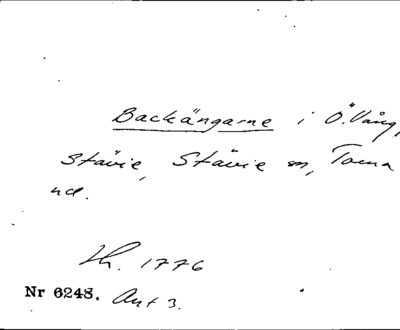 Backängarne i Ö.Vång,
Stävie, Stävie sn, Torna
hd.
Lh. 1776
Nr 6248. Akt 3.